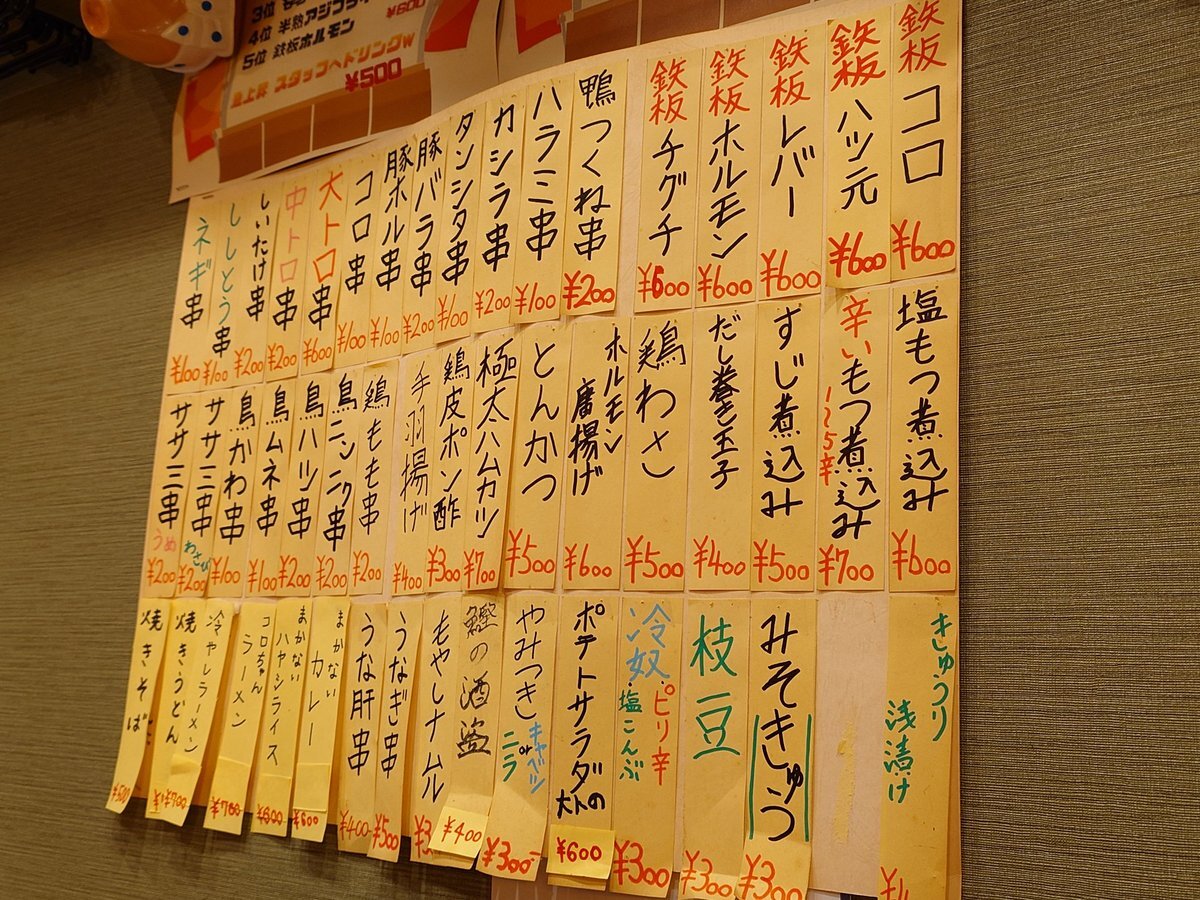 3位
4位 半熟アジフラ
¥600
5位 鉄板ホルモン
スタッフへドリンクw
¥500
鉄板コロ ¥600
鉄板ハツ元 ¥600
鉄板レバー ¥600
鉄板ホルモン ¥600
鉄板チグチ ¥600
鴨つくね串 ¥200
ハラミ串 ¥100
カシラ串 ¥200
タンシタ串 ¥100
豚バラ串 ¥200
豚ホル串 ¥100
コロ串 ¥100
大トロ串 ¥600
中トロ串 ¥200
しいたけ串 ¥200
ししとう串 ¥100
ネギ串 ¥100
塩もつ煮込み ¥600
辛いもつ煮込み 1〜5辛 ¥700
すじ煮込み ¥500
だし巻き玉子 ¥400
鶏わさ ¥500
ホルモン唐揚げ ¥600
とんかつ ¥500
極太ハムカツ ¥700
鶏皮ポン酢 ¥300
手羽揚げ ¥400
鶏もも串 ¥200
鳥ニンニク串 ¥200
鳥ハツ串 ¥200
鳥ムネ串 ¥100
鳥かわ串 ¥100
ササミ串 わさび ¥200
ササミ串 うめ ¥200
きゅうり浅漬け
みそきゅう ¥300
枝豆 ¥300
冷奴・ピリ辛・塩こんぶ ¥300
ポテトサラダ 大人の ¥600
やみつき キャベツ or ニラ ¥300-
鰹の酒盗 ¥400
もやしナムル
うなぎ串 ¥500
うな肝串 ¥400
まかないカレー ¥600
まかないハヤシライス ¥600
コロちゃんラーメン ¥700
冷やしラーメン
焼きうどん ¥700
焼きそば ¥500